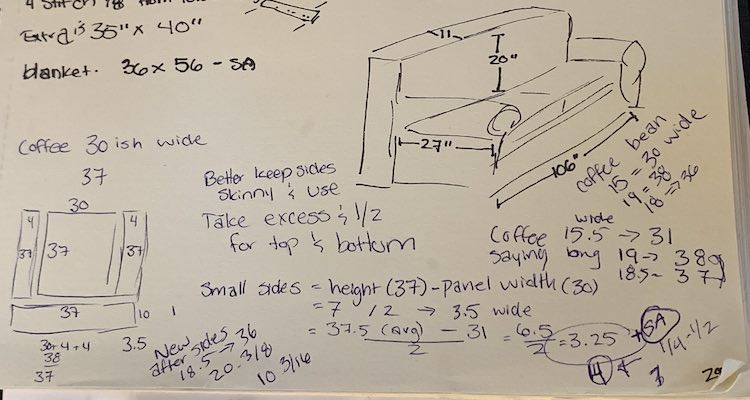 4 Stitch
Extra is 35" x 40"
blanket. 36 x 56 - SA
11
20"
27"
106"
Coffee 30 ish wide
37
30
4
4
37
37
37
37
10
1
30+4+4
38
37
3.5
Better keep sides
skinny & use
Take excess & 1/2
for top & bottom
coffee bean
15 = 30 wide
19 = 38
18 => 36
wide
Coffee 15.5 → 31
Saying long 19 → 38
18.5 - 37
Small sides = height (37) - panel width (30)
= 7 /2 → 3.5 wide
= 37.5 (avg) - 31 = 6.5 = 3.25 + SA
2
2
1/4 - 1/2
4
New
after sides
18.5 → 36
20 - 3/8
10 3/16